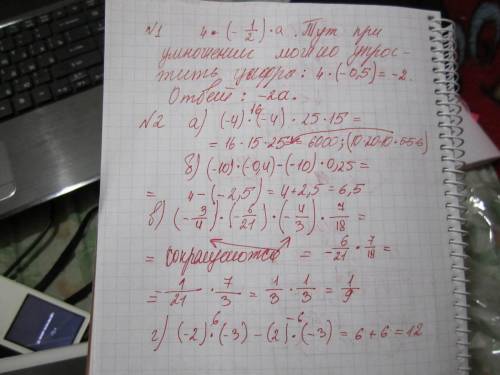 №1 4·(-1/2)·a. Тут при
умножении можно упрос-
тить цифра: 4·(-0,5)=-2.
Ответ: -2a.
№2 а) (-4)·(-4)·25·15=
16
=16·15·25=6000;
б) (-10)·(-0,4)-(-10)·0,25=
= 4-(-2,5)=4+2,5=6,5
в) (-3/4)·(-6/21)·(-4/3)·7/18=
= сокращаются = -6/21·7/18=
= 1/21·7/3=1/3·1/3=1/9
г) (-2)·(-3)-(2)·(-3)=6+6=12
6 -6